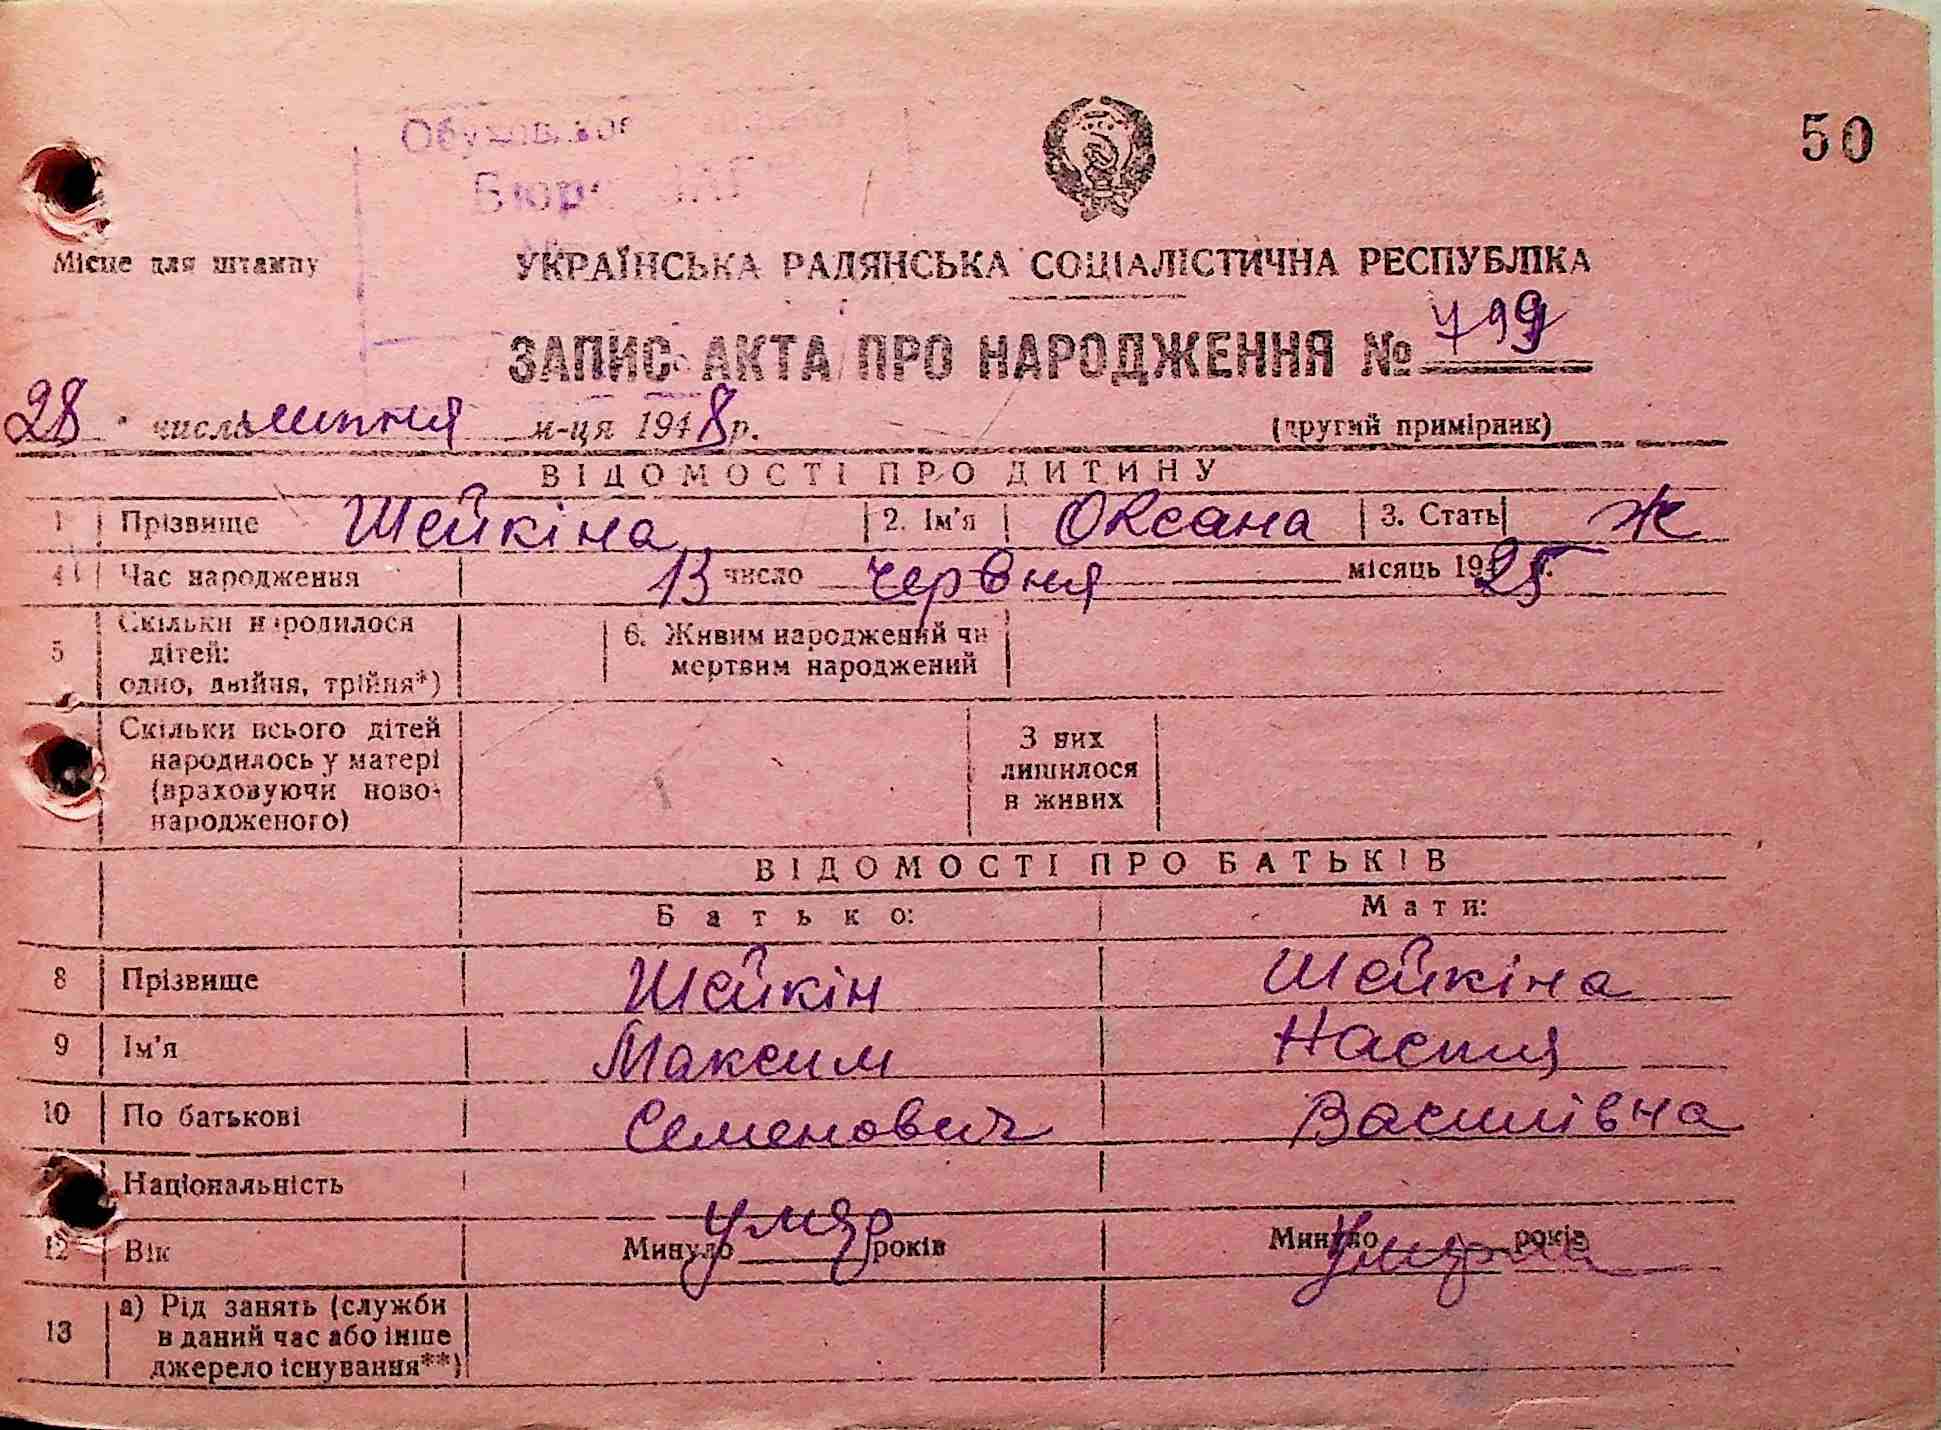 50
Місце для штампу
УКРАЇНСЬКА РАДЯНСЬКА СОЦІАЛІСТИЧНА РЕСПУБЛІКА
ЗАПИС АКТА ПРО НАРОДЖЕННЯ № 799
28 числа липня м-ця 1948 р. (другий примірник)
ВІДОМОСТІ ПРО ДИТИНУ
1 Прізвище Шейкіна 2. Ім'я Оксана 3. Стать Ж
4 Час народження 13 число червня місяць 1925
5 Скільки народилося дітей: одно, двійня, трійня*) 6. Живим народжений чи мертвим народжений
Скільки всього дітей народилось у матері (враховуючи новонародженого) З них лишилося в живих
ВІДОМОСТІ ПРО БАТЬКІВ
Батько: Мати:
8 Прізвище Шейкін Шейкіна
9 Ім'я Максим Настя
10 По батькові Семенович Василівна
Національність
12 Вік Минуло умер років Минуло умерла років
13 а) Рід занять (служби в даний час або інше джерело існування**)